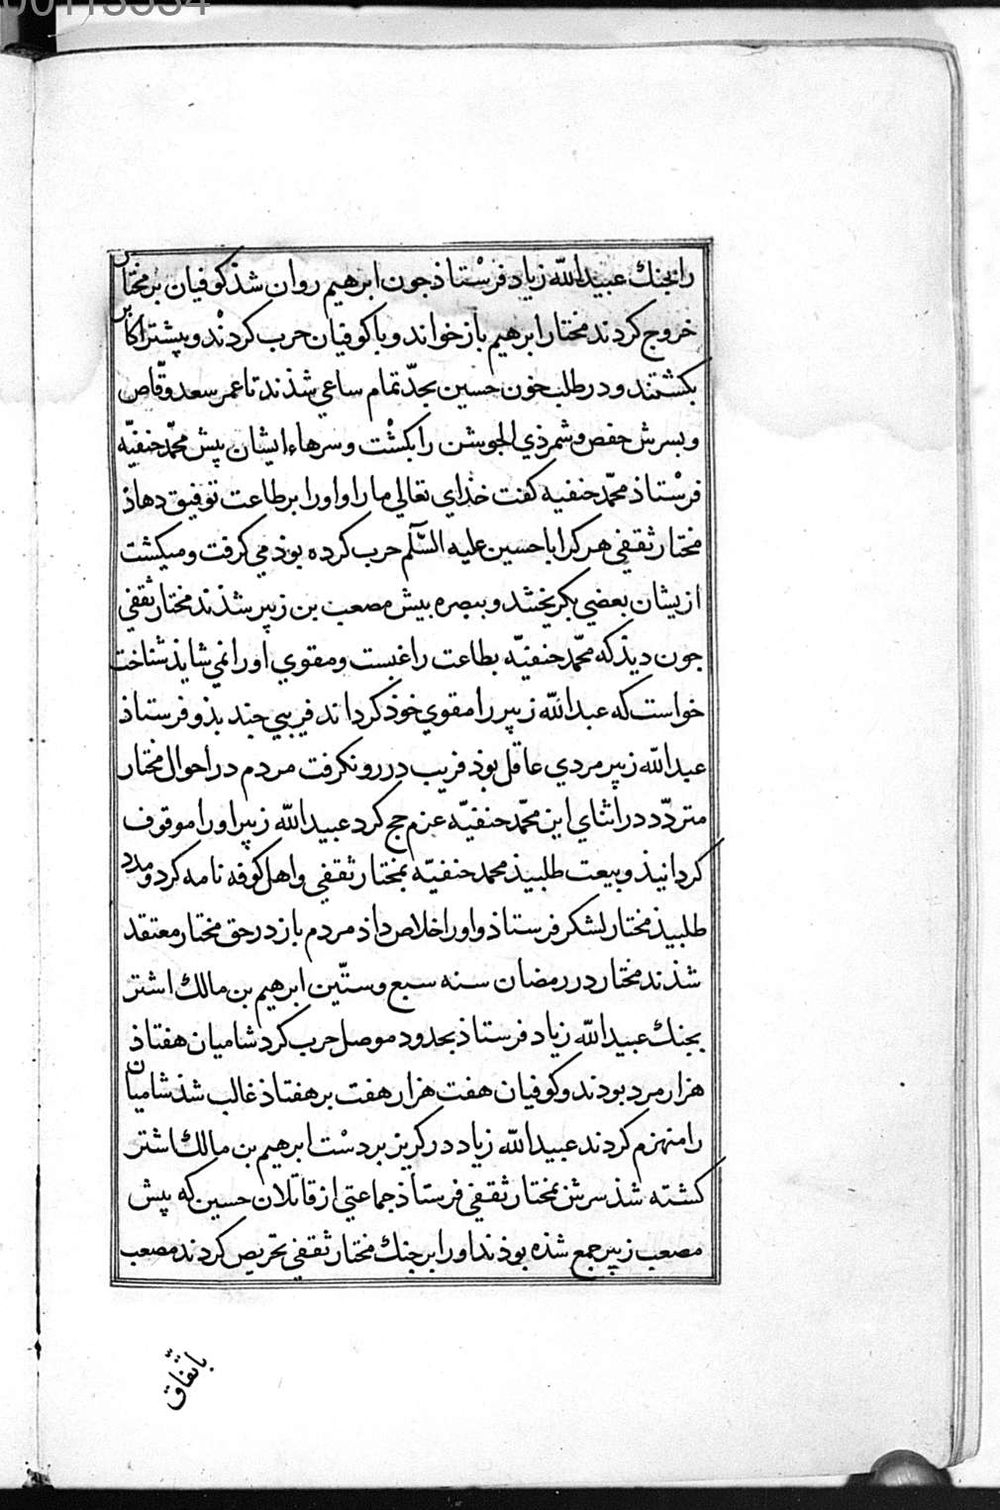 00113534
را بجنك عبيدالله زياد فرستاذ جون ابرهيم روان شذ كوفيان بر مختار
خروج كردند مختار ابرهيم باز خواند و با كوفيان حرب كردند و پيشتر اكابر
بكشتند و در طلب خون حسين بجدّ تمام ساعي شذند تا عمر سعد وقّاص
و بسرش حفص و شمر ذي الجوشن را بكشت و سرهاء ايشان پيش محمّد حنفيّه
فرستاذ محمّد حنفيه كفت خذاي تعالي ما را و او را بر طاعت توفيق دهاذ
مختار ثقفي هر كرا با حسين عليه السّلم حرب كرده بوذ مي كرفت و ميكشت
ازيشان بعضي بكريختند و ببصره بيش مصعب بن زبير شذند مختار ثقفي
جون ديذ كه محمّد حنفيّه بطاعت راغبست و مقوي او را نمي شايذ شناخت
خواست كه عبدالله زبير را مقوي خوذ كرداند فريبي جند بذو فرستاذ
عبدالله زبير مردي عاقل بوذ فريب در رو نكرفت مردم در احوال مختار
متردّد در اثناي اين محمّد حنفيّه عزم حج كرد عبيدالله زبير او را موقوف
كردانيذ و بيعت طلبيذ محمد حنفيّه بمختار ثقفي و اهل كوفه نامه كرد و مدد
طلبيذ مختار لشكر فرستاذ و او را خلاص داذ مردم باز در حق مختار معتقد
شذند مختار در رمضان سنه سبع و ستّين ابرهيم بن مالك اشتر
بجنك عبيدالله زياد فرستاذ بحدود موصل حرب كرد شاميان هفتاذ
هزار مرد بودند و كوفيان هفت هزار هفت بر هفتاذ غالب شذ شاميان
را منهزم كردند عبيدالله زياد در كريز بر دست ابرهيم بن مالك اشتر
كشته شذ سرش بمختار ثقفي فرستاذ جماعتي از قاتلان حسين كه پيش
مصعب زبير جمع شذه بوذند او را بر جنك مختار ثقفي تحريص كردند مصعب
باتّفاق